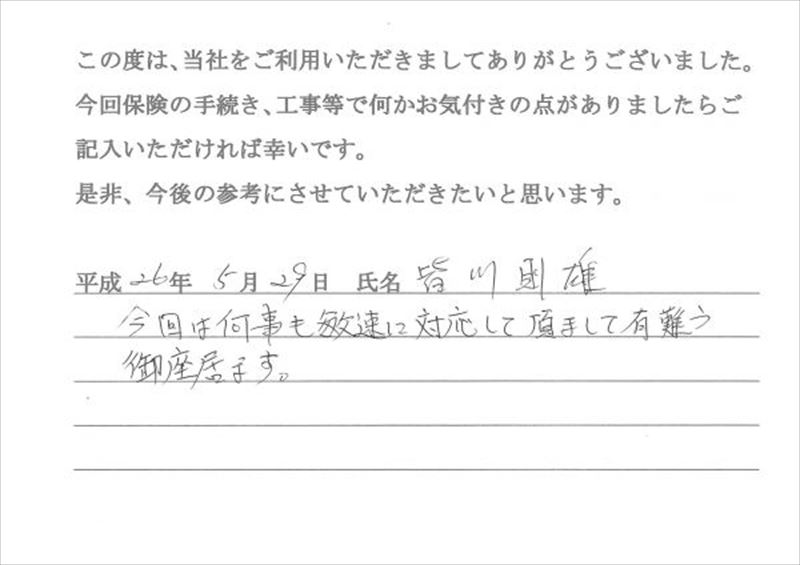 この度は、当社をご利用いただきましてありがとうございました。
今回保険の手続き、工事等で何かお気付きの点がありましたらご
記入いただければ幸いです。
是非、今後の参考にさせていただきたいと思います。
平成 26年 5月 29日 氏名 皆川則雄
今回は何事も敏速に対応して頂まして有難う
御座居ます。